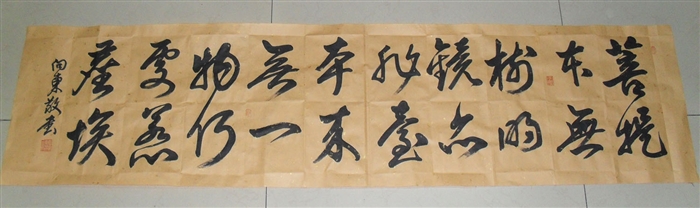 菩提
本無
樹明
鏡亦
非臺
本來
無一
物何
處惹
塵埃
向東敬書